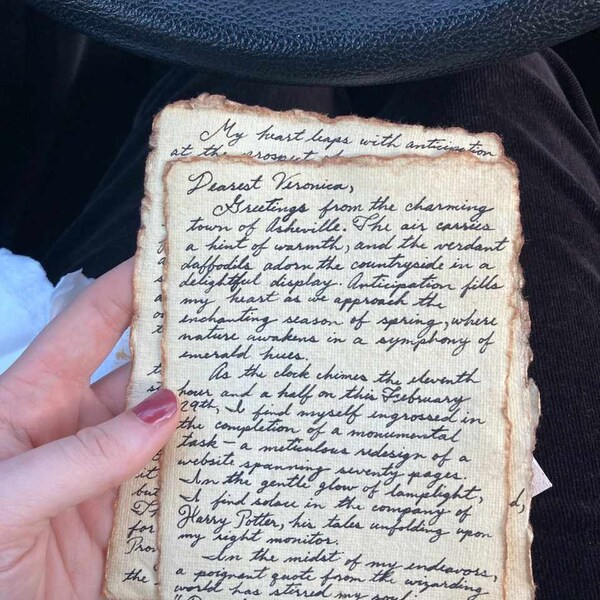 My heart leaps with anticipation
at the prospect
Dearest Veronica,
Greetings from the charming
town of Asheville. The air carries
a hint of warmth, and the verdant
daffodils adorn the countryside in a
delightful display. Anticipation fills
my heart as we approach the
enchanting season of spring, where
nature awakens in a symphony of
emerald hues.
As the clock chimes the eleventh
hour and a half on this February
29th, I find myself engrossed in
the completion of a monumental
task – a meticulous redesign of a
website spanning seventy pages.
In the gentle glow of lamplight,
I find solace in the company of
Harry Potter, his tales unfolding upon
my right monitor.
In the midst of my endeavors,
a poignant quote from the wizarding
world has stirred my soul:
it
but
for
Prov
the
d,